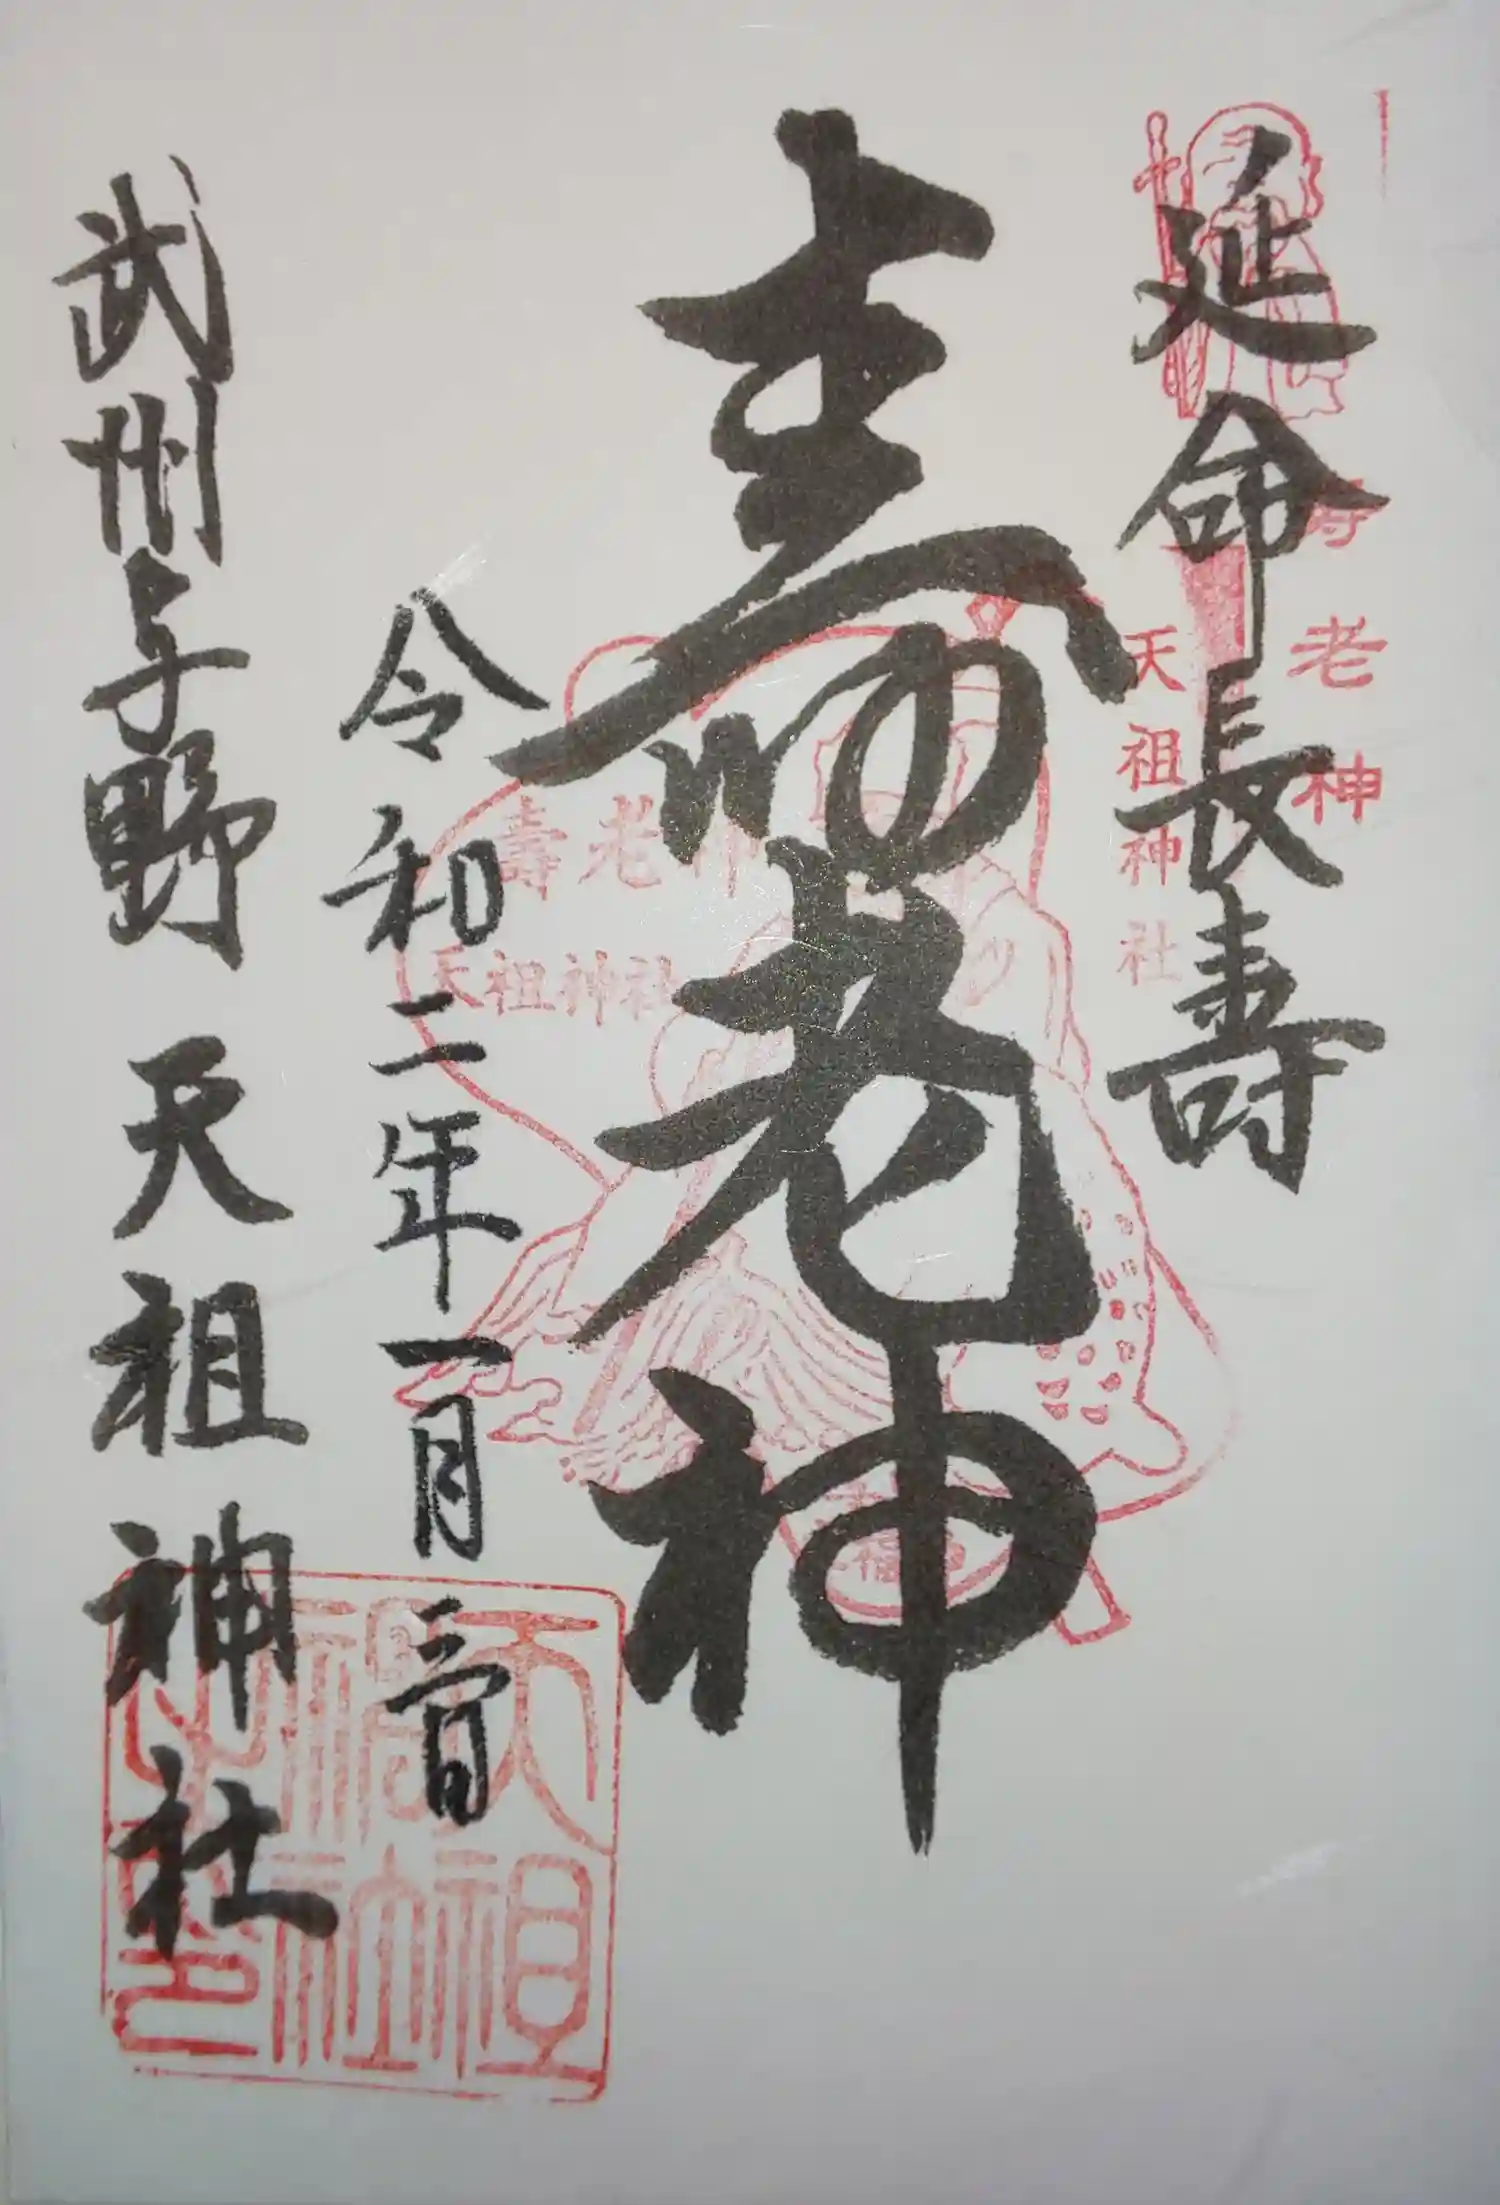 延命長寿
寿老神
天祖神社
壽老神
令和二年一月三日
武州与野 天祖神社
壽老神
天祖神社
福
天祖
神社
之印